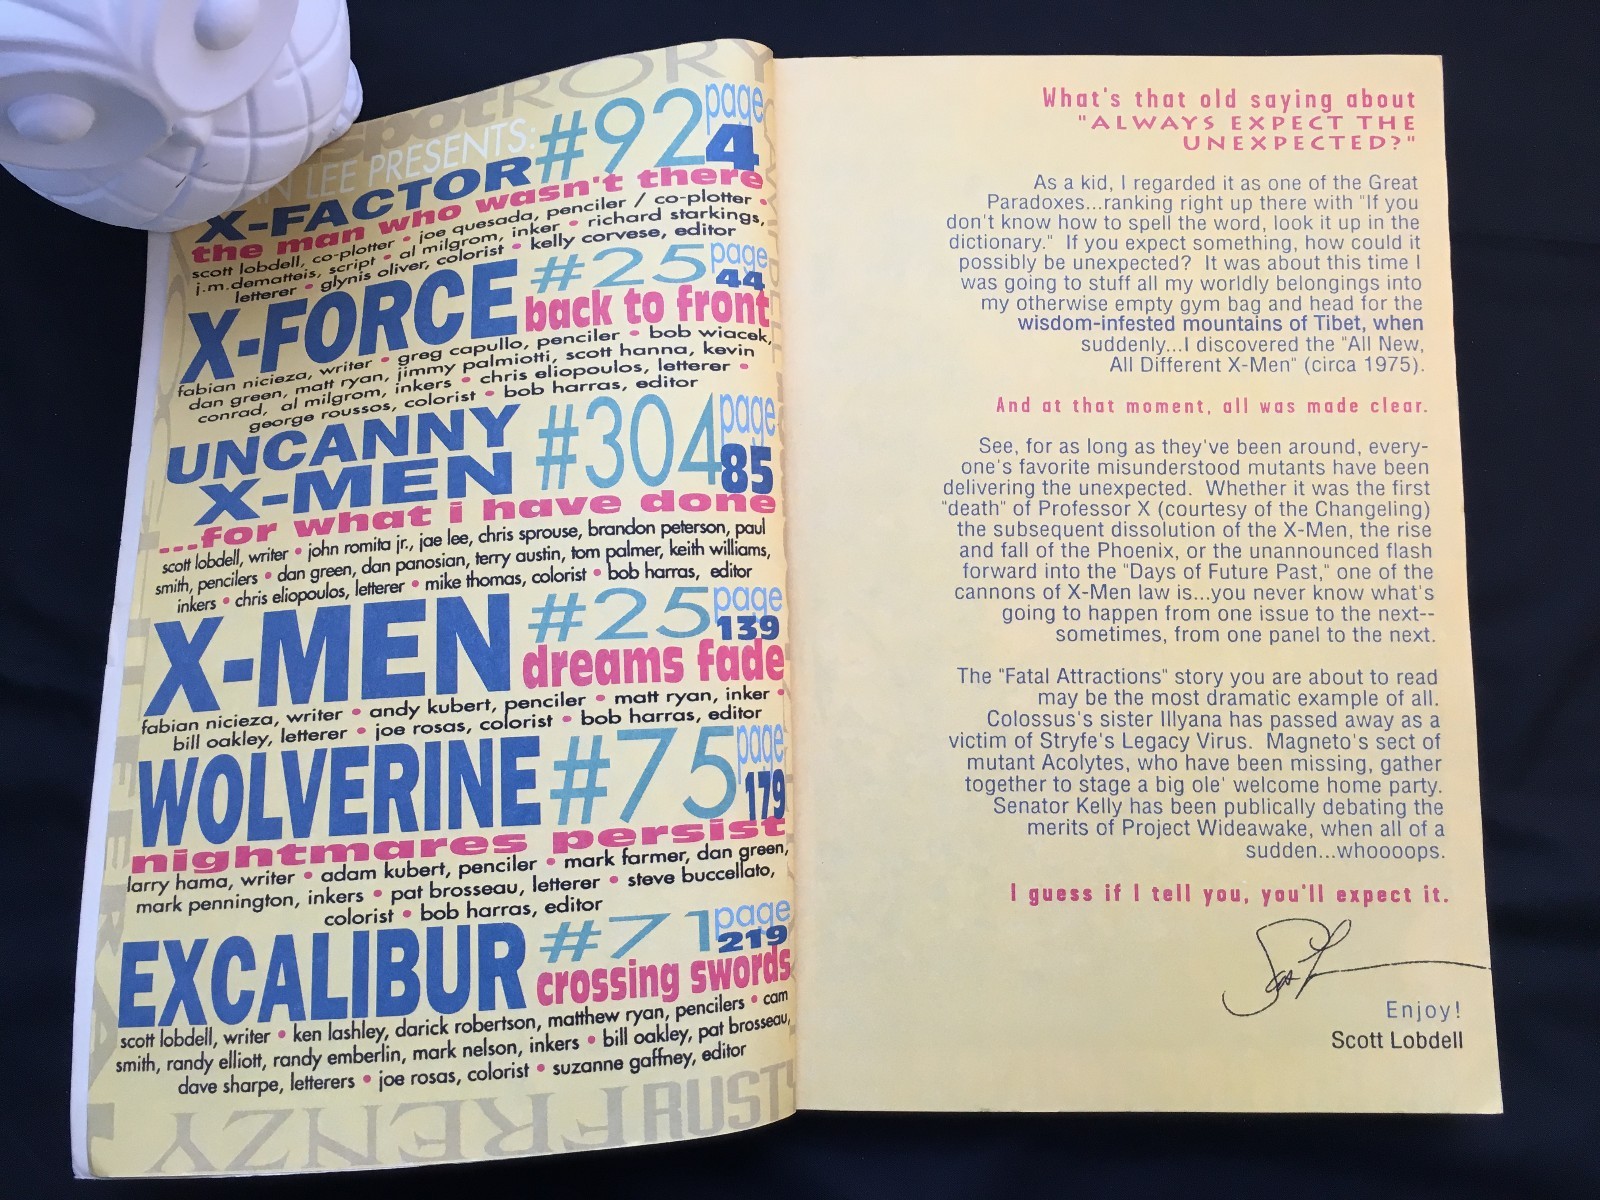 spot RORY
LEE PRESENTS:
X-FACTOR #92 page 4
the man who wasn't there
scott lobdell, co-plotter • joe quesada, penciler / co-plotter •
j.m.dematteis, script • al milgrom, inker • richard starkings,
letterer • glynis oliver, colorist • kelly corvese, editor
X-FORCE #25 page 44
back to front
fabian nicieza, writer • greg capullo, penciler • bob wiacek,
dan green, matt ryan, jimmy palmiotti, scott hanna, kevin
conrad, al milgrom, inkers • chris eliopoulos, letterer •
george roussos, colorist • bob harras, editor
UNCANNY
X-MEN #304 page 85
...for what i have done
scott lobdell, writer • john romita jr., jae lee, chris sprouse, brandon peterson, paul
smith, pencilers • dan green, dan panosian, terry austin, tom palmer, keith williams,
inkers • chris eliopoulos, letterer • mike thomas, colorist • bob harras, editor
X-MEN #25 page 139
dreams fade
fabian nicieza, writer • andy kubert, penciler • matt ryan, inker •
bill oakley, letterer • joe rosas, colorist • bob harras, editor
WOLVERINE #75 page 179
nightmares persist
larry hama, writer • adam kubert, penciler • mark farmer, dan green,
mark pennington, inkers • pat brosseau, letterer • steve buccellato,
colorist • bob harras, editor
EXCALIBUR #71 page 219
crossing swords
scott lobdell, writer • ken lashley, darick robertson, matthew ryan, pencilers • cam
smith, randy elliott, randy emberlin, mark nelson, inkers • bill oakley, pat brosseau,
dave sharpe, letterers • joe rosas, colorist • suzanne gaffney, editor
FRENZY RUSTY
What's that old saying about
"ALWAYS EXPECT THE
UNEXPECTED?"
As a kid, I regarded it as one of the Great
Paradoxes...ranking right up there with "If you
don't know how to spell the word, look it up in the
dictionary." If you expect something, how could it
possibly be unexpected? It was about this time I
was going to stuff all my worldly belongings into
my otherwise empty gym bag and head for the
wisdom-infested mountains of Tibet, when
suddenly...I discovered the "All New,
All Different X-Men" (circa 1975).
And at that moment, all was made clear.
See, for as long as they've been around, every-
one's favorite misunderstood mutants have been
delivering the unexpected. Whether it was the first
"death" of Professor X (courtesy of the Changeling)
the subsequent dissolution of the X-Men, the rise
and fall of the Phoenix, or the unannounced flash
forward into the "Days of Future Past," one of the
cannons of X-Men law is...you never know what's
going to happen from one issue to the next--
sometimes, from one panel to the next.
The "Fatal Attractions" story you are about to read
may be the most dramatic example of all.
Colossus's sister Illyana has passed away as a
victim of Stryfe's Legacy Virus. Magneto's sect of
mutant Acolytes, who have been missing, gather
together to stage a big ole' welcome home party.
Senator Kelly has been publically debating the
merits of Project Wideawake, when all of a
sudden...whoooops.
I guess if I tell you, you'll expect it.
Enjoy!
Scott Lobdell